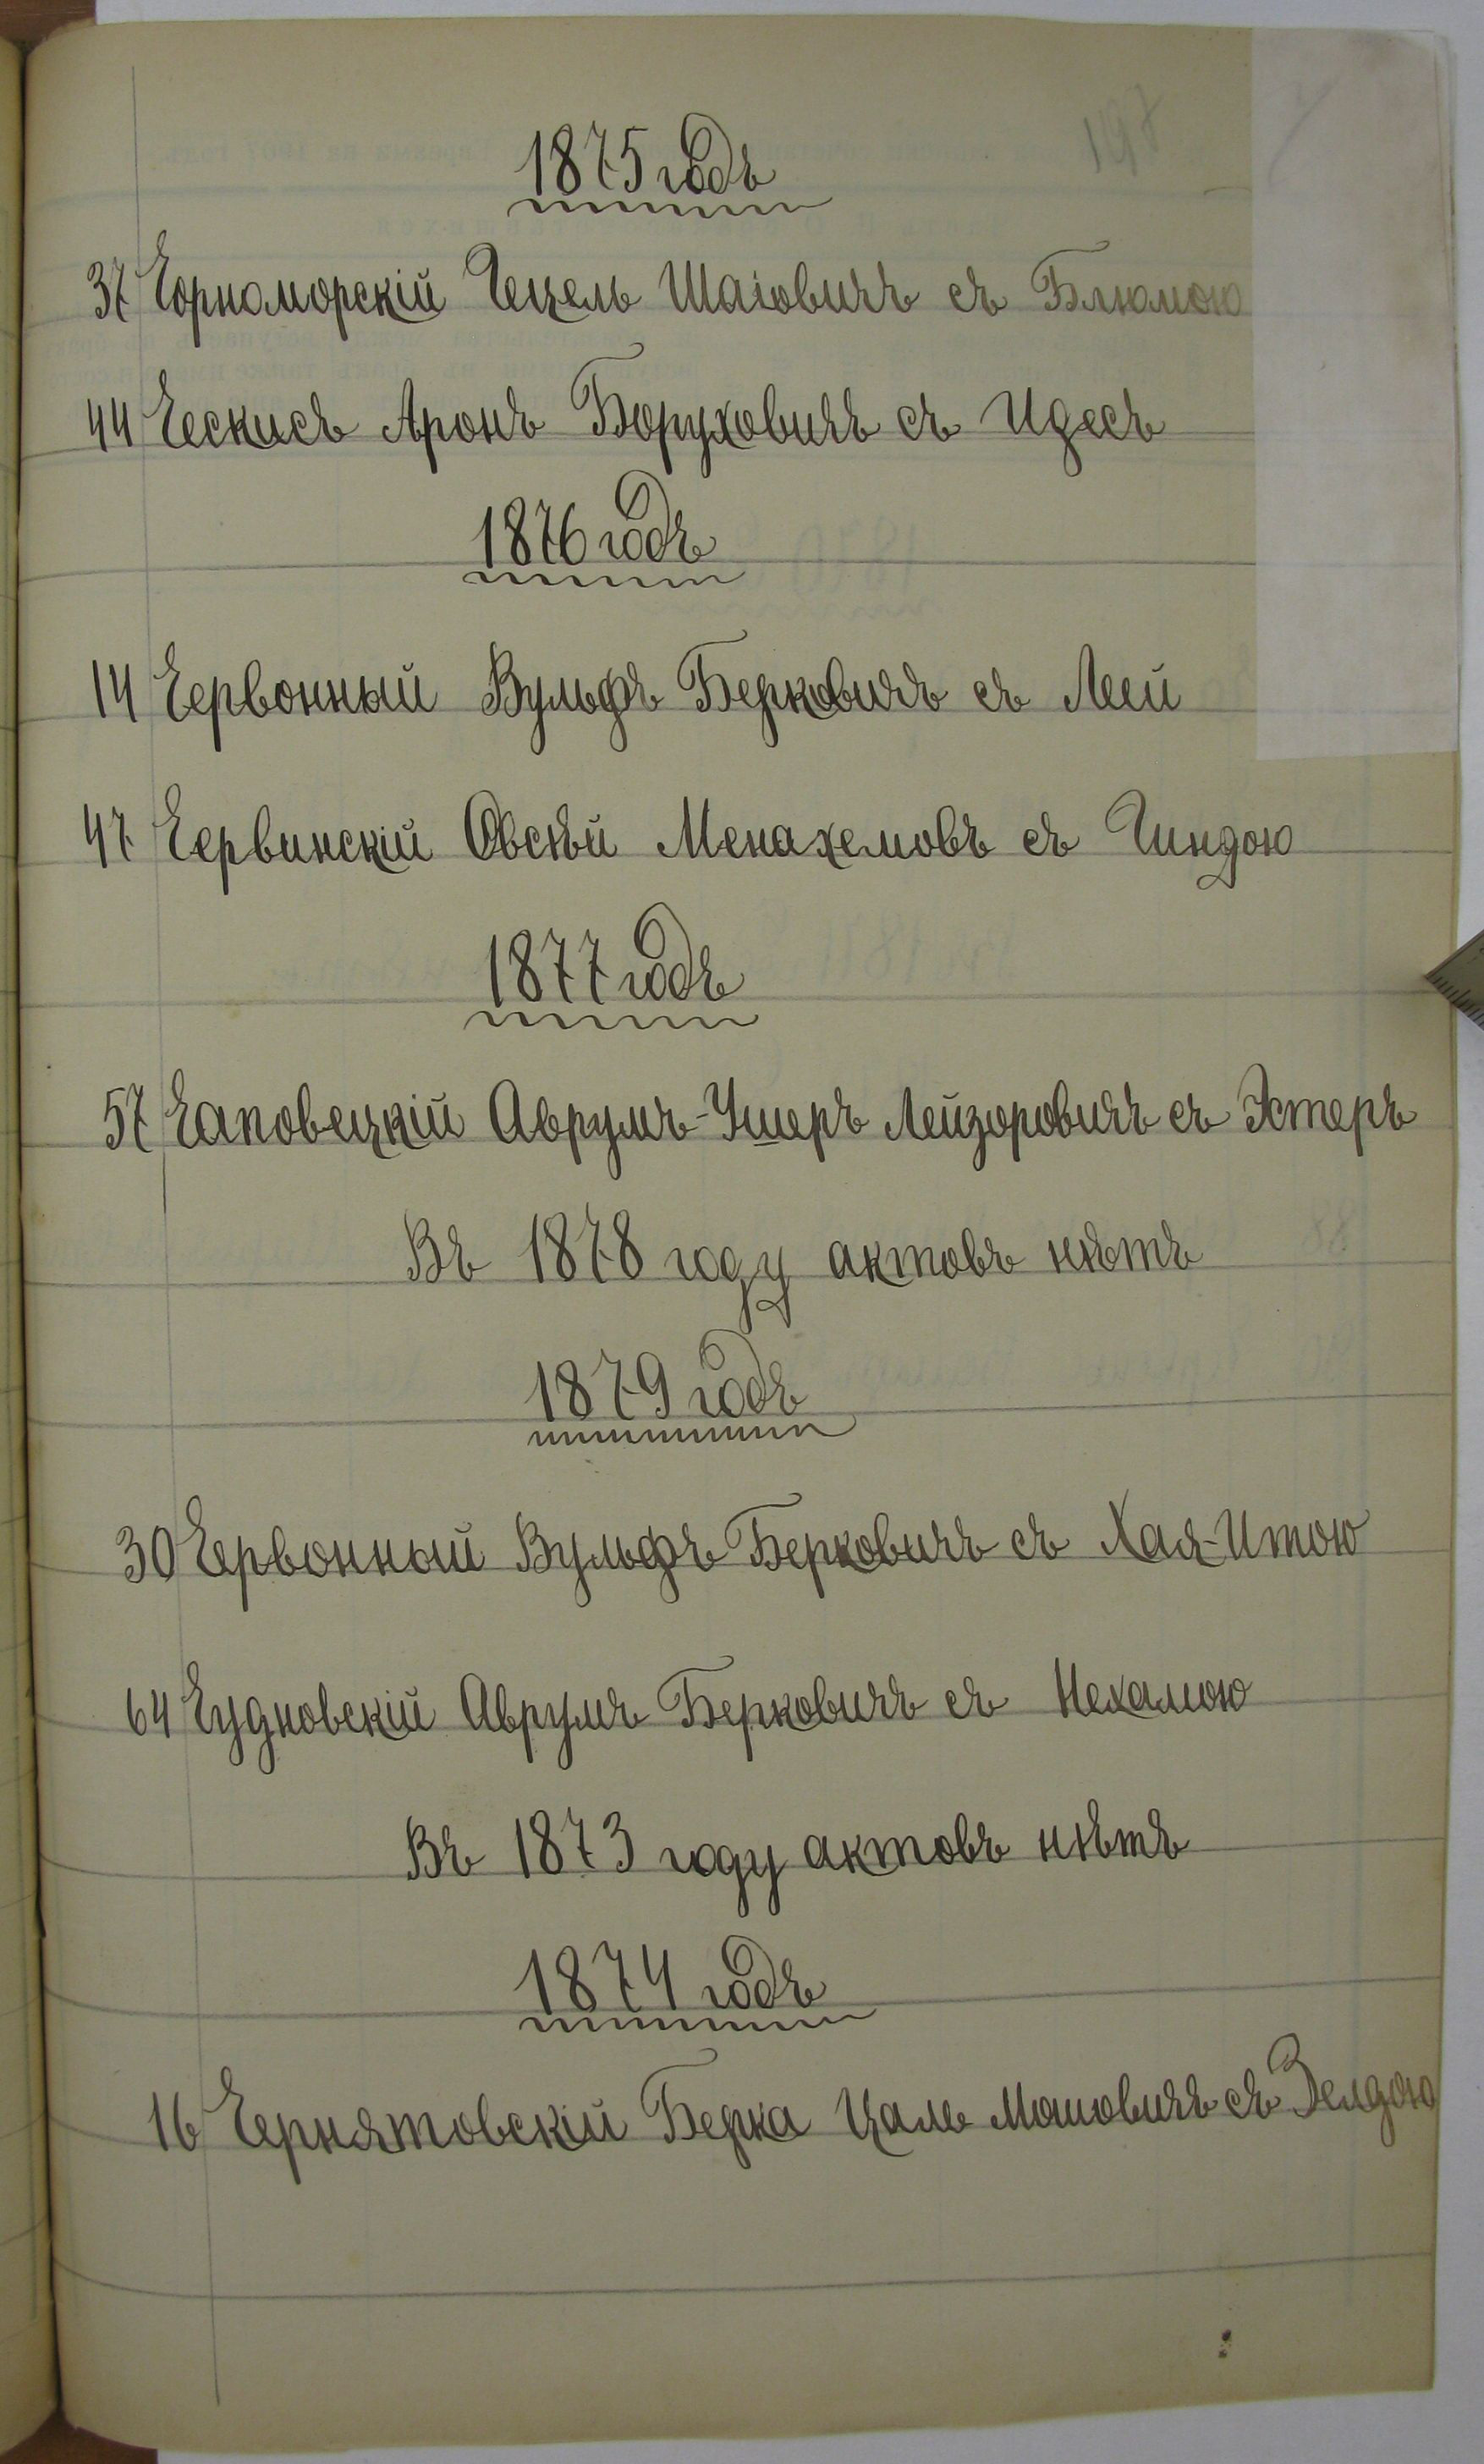 198
1875 годъ
37 Чорноморскій Гецель Шаіовичъ съ Блюмою
44 Ческисъ Аронъ Боруховичъ съ Идесъ
1876 годъ
14 Червонный Вульфъ Берковичъ съ Леей
47 Червинскій Овсѣй Менахемовъ съ Гиндою
1877 годъ
57 Чаповецкій Аврумъ-Ушеръ Лейзоровичъ съ Эстеръ
Въ 1878 году актовъ нѣтъ
1879 годъ
30 Червонный Вульфъ Берковичъ съ Хая-Итою
64 Чудновскій Аврумъ Берковичъ съ Нехамою
Въ 1873 году актовъ нѣтъ
1874 годъ
16 Чернятовскій Берка Цаль Мошовичъ съ Зелдою